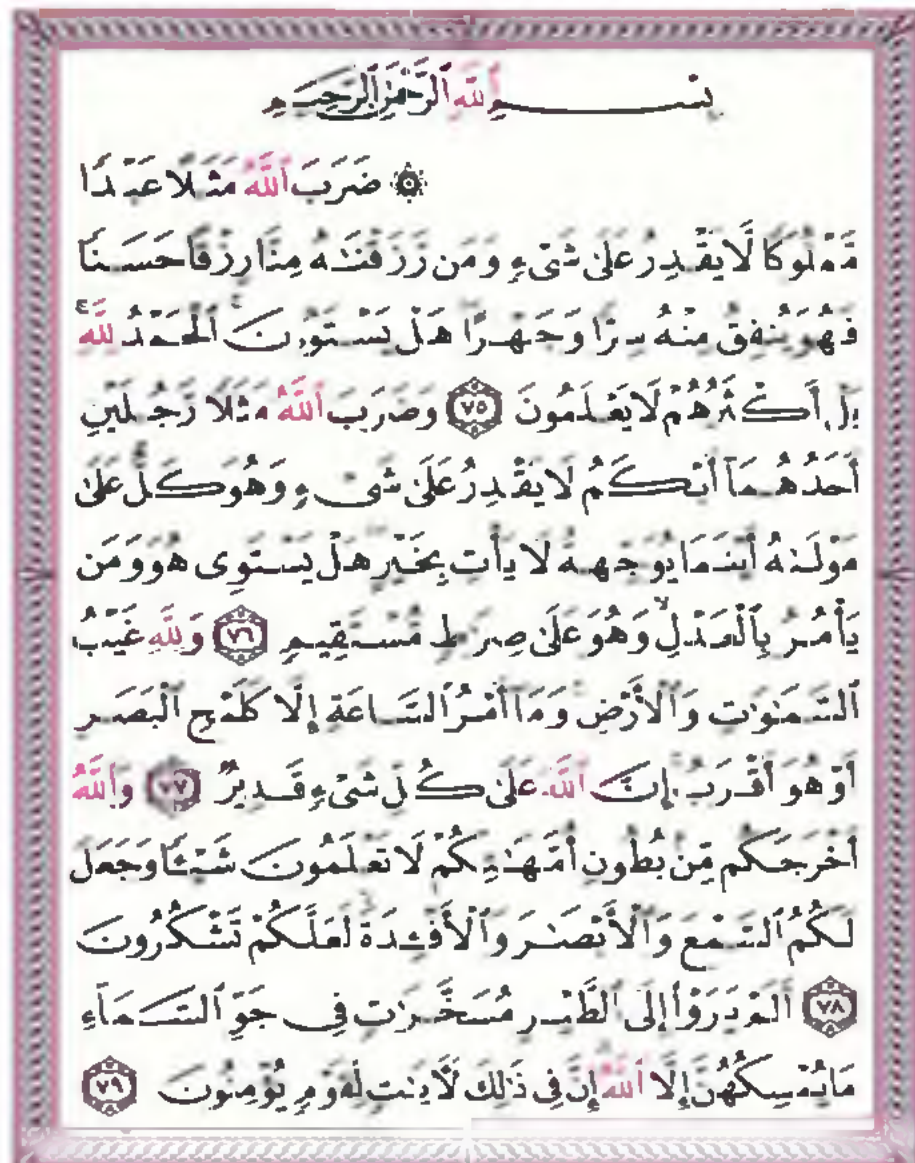 بِسْمِ ٱللَّهِ ٱلرَّحْمَٰنِ ٱلرَّحِيمِ
۞ ضَرَبَ ٱللَّهُ مَثَلًا عَبْدًا
مَّمْلُوكًا لَّا يَقْدِرُ عَلَىٰ شَىْءٍ وَمَن رَّزَقْنَٰهُ مِنَّا رِزْقًا حَسَنًا
فَهُوَ يُنفِقُ مِنْهُ سِرًّا وَجَهْرًا هَلْ يَسْتَوُۥنَ ۚ ٱلْحَمْدُ لِلَّهِ ۚ
بَلْ أَكْثَرُهُمْ لَا يَعْلَمُونَ ٧٥ وَضَرَبَ ٱللَّهُ مَثَلًا رَّجُلَيْنِ
أَحَدُهُمَآ أَبْكَمُ لَا يَقْدِرُ عَلَىٰ شَىْءٍ وَهُوَ كَلٌّ عَلَىٰ
مَوْلَىٰهُ أَيْنَمَا يُوَجِّههُّ لَا يَأْتِ بِخَيْرٍ هَلْ يَسْتَوِى هُوَ وَمَن
يَأْمُرُ بِٱلْعَدْلِ ۙ وَهُوَ عَلَىٰ صِرَٰطٍ مُّسْتَقِيمٍ ٧٦ وَلِلَّهِ غَيْبُ
ٱلسَّمَٰوَٰتِ وَٱلْأَرْضِ وَمَآ أَمْرُ ٱلسَّاعَةِ إِلَّا كَلَمْحِ ٱلْبَصَرِ
أَوْ هُوَ أَقْرَبُ إِنَّ ٱللَّهَ عَلَىٰ كُلِّ شَىْءٍ قَدِيرٌ ٧٧ وَٱللَّهُ
أَخْرَجَكُم مِّنۢ بُطُونِ أُمَّهَٰتِكُمْ لَا تَعْلَمُونَ شَيْـًٔا وَجَعَلَ
لَكُمُ ٱلسَّمْعَ وَٱلْأَبْصَٰرَ وَٱلْأَفْـِٔدَةَ لَعَلَّكُمْ تَشْكُرُونَ
٧٨ أَلَمْ يَرَوْا۟ إِلَى ٱلطَّيْرِ مُسَخَّرَٰتٍ فِى جَوِّ ٱلسَّمَآءِ
مَا يُمْسِكُهُنَّ إِلَّا ٱللَّهُ إِنَّ فِى ذَٰلِكَ لَـَٔايَٰتٍ لِّقَوْمٍ يُؤْمِنُونَ ٧٩